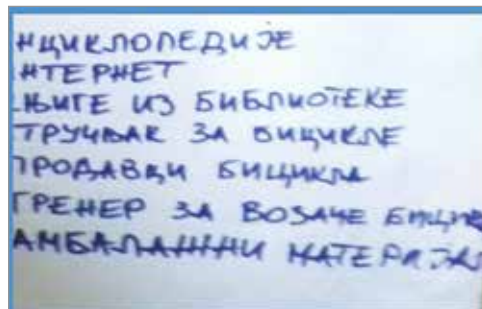 НЦИКЛОПЕДИЈЕ
НТЕРНЕТ
ЊИГЕ ИЗ БИБЛИОТЕКЕ
ТРУЧЊАК ЗА БИЦИКЛЕ
ПРОДАВЦИ БИЦИКЛА
ТРЕНЕР ЗА ВОЗАЧЕ БИЦИК
АМБАЛАЖНИ МАТЕРИЈАЛ